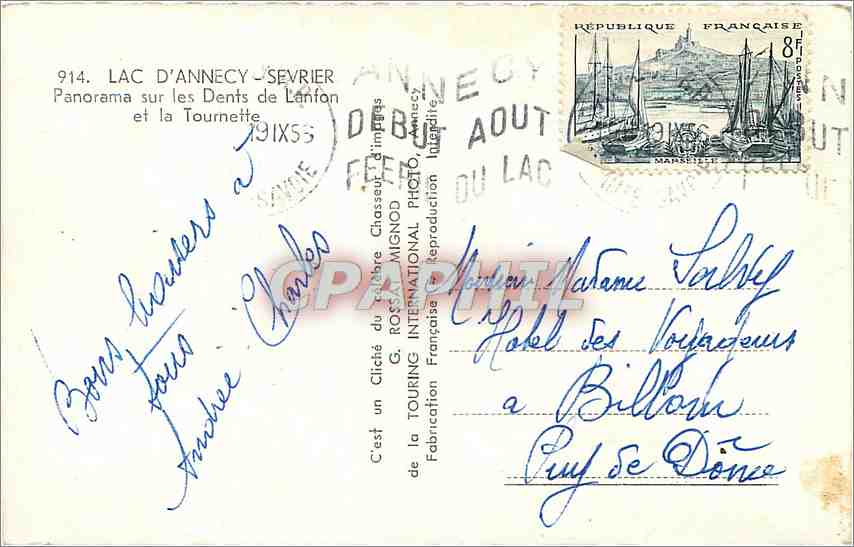 914. LAC D'ANNECY - SEVRIER
Panorama sur les Dents de Lanfon
et la Tournette
RÉPUBLIQUE FRANÇAISE
8F
POSTES
MARSEILLE
19 IX 56
SAVOIE
ANNECY
DEBUT AOUT
DU LAC
Bons baisers à
tous
Andrée Charles
C'est un Cliché du célèbre Chasseur d'images
G. ROSSAT-MIGNOD
de la TOURING INTERNATIONAL PHOTO, Annecy
Fabrication Française - Reproduction Interdite
CPAPHIL
Monsieur Madame
Hotel des Voyageurs
a Billom
Puy de Dôme